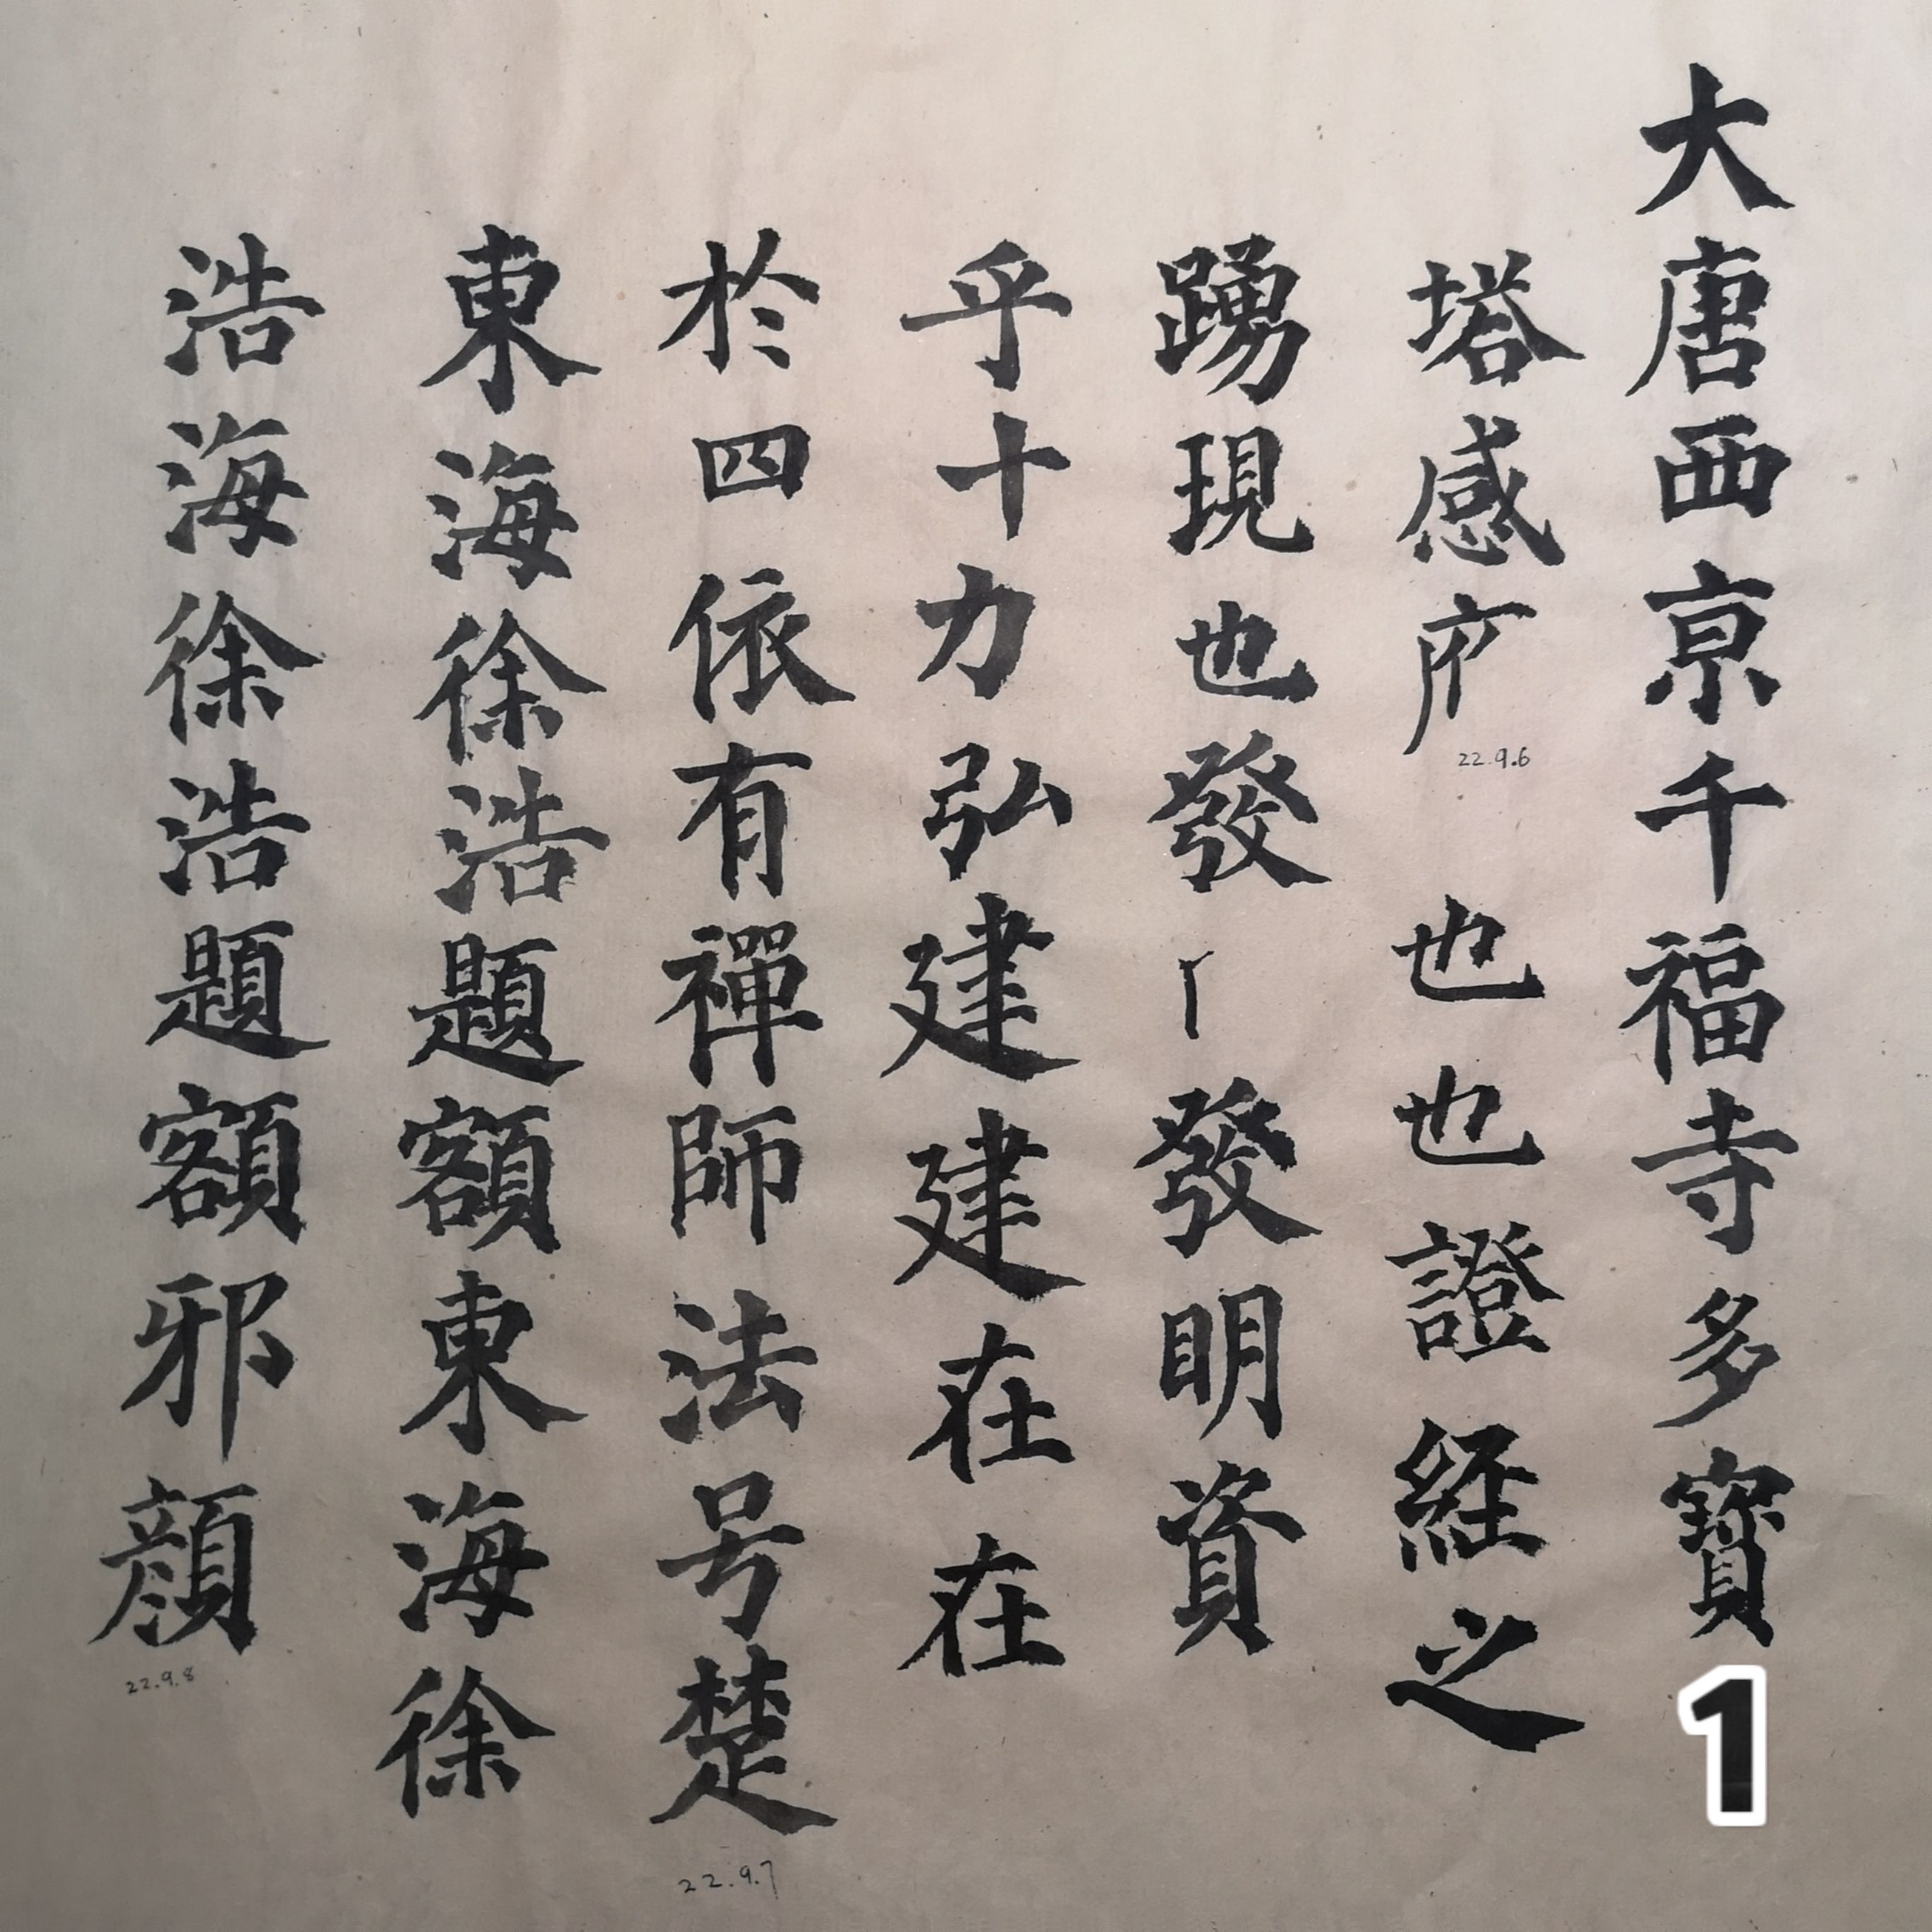 大唐西京千福寺多寶
1
塔感
22.9.6
也也證経之
踴現也發
發明資
乎十力弘建建在在
於四依有禪師法号楚
22.9.7
東海徐浩題額東海徐
浩海徐浩題額邪顔
22.9.8